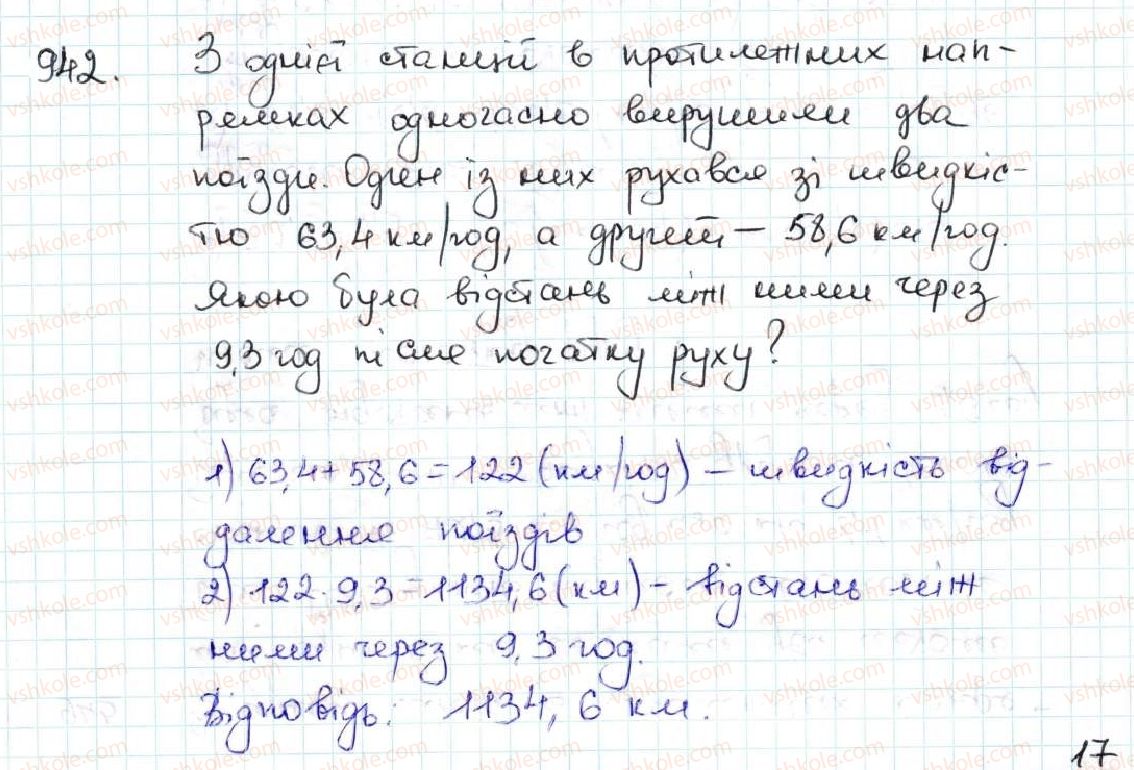 942. З однієї станції в протилежних нап-
рямках одночасно вирушили два
поїзди. Один із них рухався зі швидкіс-
тю 63,4 км/год, а другий – 58,6 км/год.
Якою була відстань між ними через
9,3 год після початку руху?
1) 63,4 + 58,6 = 122 (км/год) – швидкість від-
далення поїздів
2) 122 · 9,3 = 1134,6 (км) – відстань між
ними через 9,3 год.
Відповідь: 1134,6 км.
17
vshkole.com